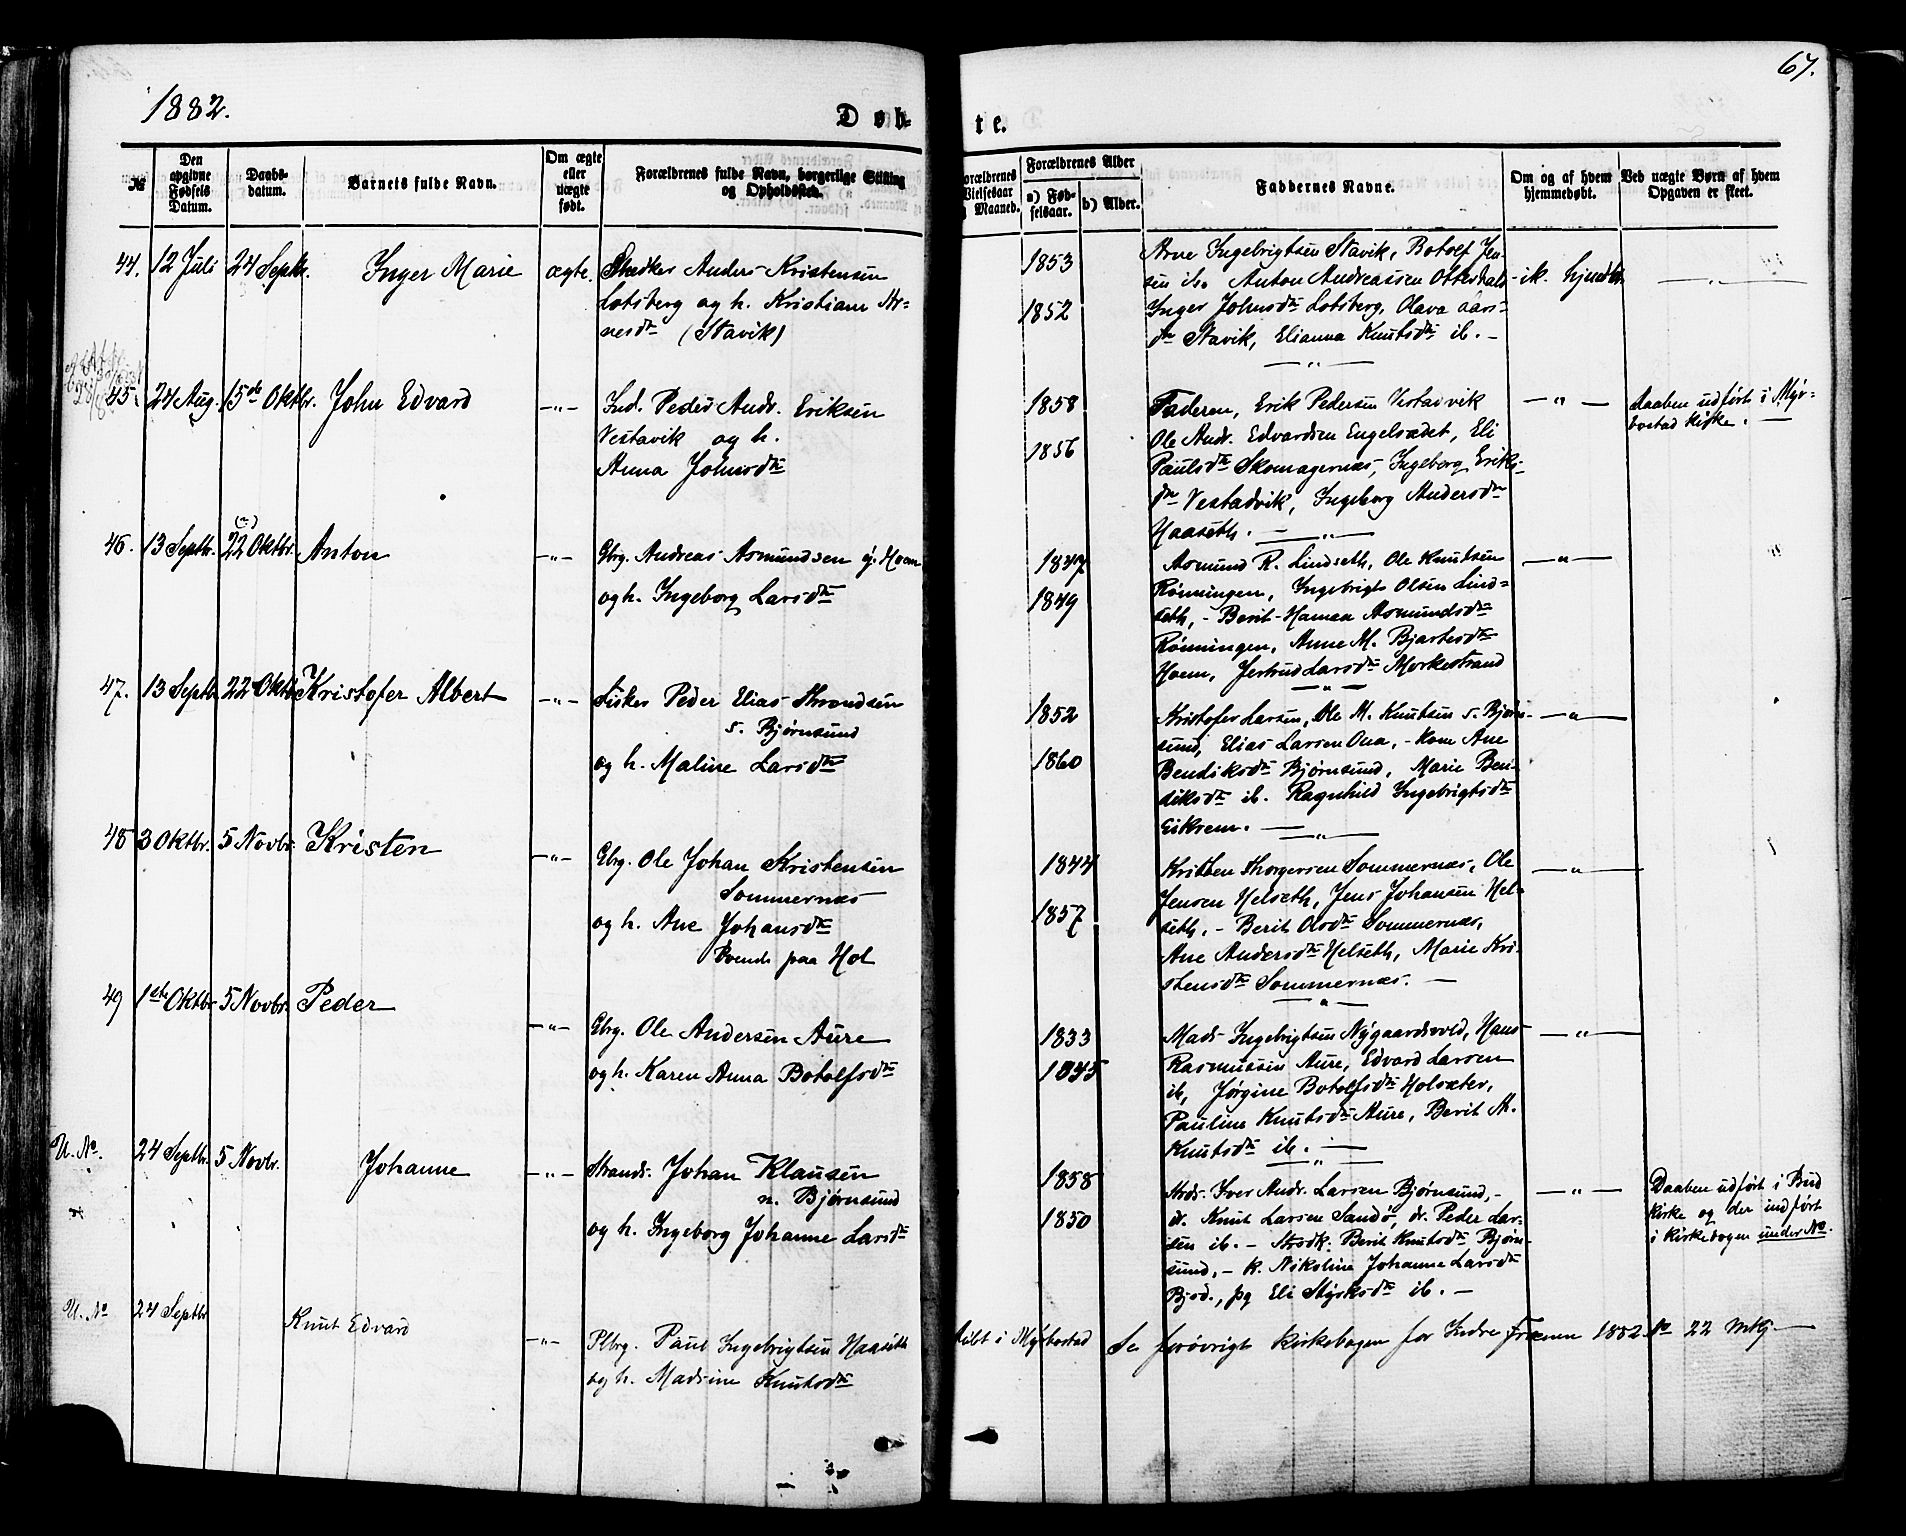 67.
1882.
Døb-
te.
№
Den opgivne Fødsels Datum.
Daabs-datum.
Barnets fulde Navn.
Om ægte eller uægte født.
Forældrenes fulde Navn, borgerlige Stilling og Opholdssted.
Forældrenes Vielsesaar Maaned.
Forældrenes Alder
a) Fød-selsaar.
b) Alder.
Faddernes Navne.
Om og af hvem hjemmedøbt.
Ved uægte Børn af hvem Opgaven er skeet.
44. 12 Juli 24 Septbr. Inger Marie ægte. Anders Kristensen
Lotsberg og h. Kristiane Ar-
nesdtr (Stavik)
1853
1852
Arne Ingebrigtsen Stavik, Botolf Jen-
sen ib. Anton Andreassen Otterdal-
Inger Johnsdtr Lotsberg, Olava Lars-
dtr Stavik, Elianna Knutsdtr ib. -
ik. hjmdbt
45. 24 Aug. 15de Oktbr. John Edvard -"- Ind. Peder Andr. Eriksen
Vestavik og h.
Anna Johnsdtr
1858
1856
Faderen, Erik Pedersen Vestadvik
Ole Andr. Edvardsen Engelsædet, Eli
Paulsdtr Skomagernæs, Ingeborg Eriks-
dtr Vestadvik, Ingeborg Andersdtr
Haaseth. -
-"-
Daaben udført i Myr-
bostad Kirke. -
46. 13 Septbr. 22 Oktbr. Anton -"- Gbrg. Andreas Asmundsen y. Hoem
og h. Ingeborg Larsdtr
1847
1849
Asmund R. Lindseth, Ole Knutsen
Rønningen, Ingebrigt Olsen Lind-
seth, - Berit Hanna Asmundsdtr
Rønningen, Anne M. Bjartesdtr
Hoem, Jertrud Larsdtr Morkestrand
-"-
47. 13 Septbr 22 Oktbr Kristofer Albert -"- Fisker Peder Elias Throndsen
s. Bjørnsund
og h. Maline Larsdtr
1852
1860
Kristofer Larsen, Ole M. Knutsen s. Bjørn-
sund, Elias Larsen Ona, - Kone Ane
Bendiksdtr Bjørnsund, Marie Ben-
diksdtr ib. Ragnhild Ingebrigtsdtr
Eikrem. -
-"-
48 3 Oktbr. 5 Novbr. Kristen -"- Gbrg. Ole Johan Kristensen
Sommernæs
og h. Ane Johansdtr
Boende paa Hol
1844
1857
Kristen Thorgersen Sommernæs, Ole
Jensen Helseth, Jens Johansen Hel-
seth. - Berit Olsdtr Sommernæs,
Ane Andersdtr Helseth, Marie Kri-
stensdtr Sommernæs. -
-"-
49 1ste Oktbr 5 Novbr. Peder -"- Gbrg. Ole Andersen Aure
og h. Karen Anna Botolfsdtr
1833
1845
Mads Ingebrigtsen Nygaardsvold, Hans
Rasmussen Aure, Edvard Larsen
ib, Jørgine Botolfsdtr Holsæter,
Pauline Knutsdtr Aure, Berit M.
Knutsdtr ib. -
-"-
U. No. 24 Septbr. 5 Novbr. Johanne -"- Strands. Johan Klausen
n. Bjørnsund
og h. Ingeborg Johanne Larsdtr
1858
1850
Strds. Iver Andr. Larsen Bjørnsund, -
dr. Knut Larsen Sandö, dr. Peder Lar-
sen ib. - Strdk. Berit Knutsdtr Bjørn-
sund, - k. Nikoline Johanne Larsdtr
Bjsd., pg Eli Styrksdtr ib. -
-"-
Daaben udført i Bud
Kirke og der indført
i Kirkebogen under No.
U. No 24 Septbr Knut Edvard -"- Plbrg. Paul Ingebrigtsen Haaseth
og h. Madsine Knutsdtr
døbt i Myrbostad Se forøvrigt Kirkebogen for Indre Frænen 1882. No 22 Mkj. -